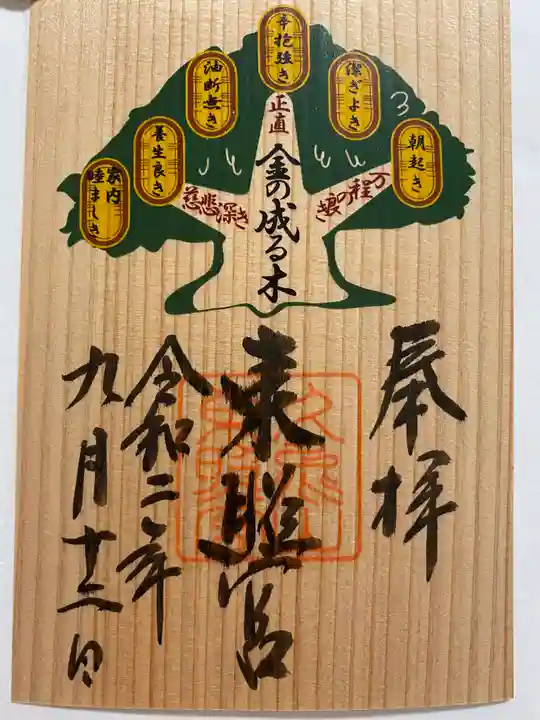 朝起き
潔ぎよき
辛抱強き
油断無き
養生良き
家内睦ましき
万程の
正直
慈悲深き
金の成る木
奉拝
東照宮
令和二年
九月十二日